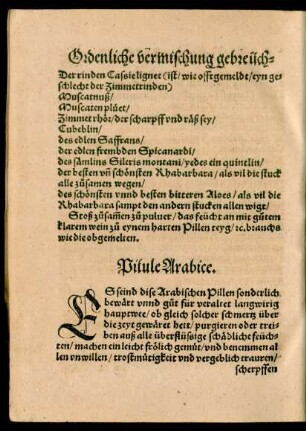 Ordenliche vermischung gebreüch-
Der rinden Cassie lignee (ist / wie offt gemeldt / eyn ge-
schlecht der Zimmetrinden)
Muscatnuß /
Muscaten plüet /
Zimmet rhör / der scharpff vnd räß sey /
Cubeblin /
des edlen Saffrans /
der edlen frembden Spicanardi /
des sämlins Sileris montani / yedes ein quintlin /
der besten vñ schönsten Rhabarbara / als vil die stuck
alle zůsamen wegen /
des schönsten vnnd besten bitteren Aloes / als vil die
Rhabarbara sampt den andern stucken allen wigt /
Stoß zůsam̃en zů puluer / das feücht an mit gůtem
klarem wein zů eynem harten Pillen teyg / ꝛc. brauchs
wie die obgemelten.
Pilule Arabice.
ES seind dise Arabischen Pillen sonderlich
bewärt vnnd gůt für veraltet langwirig
hauptwee / ob gleich solcher schmertz über
die zeyt gewäret hett / purgieren oder trei-
ben auß alle überflüßige schädliche feüch-
ten / machen ein leicht frölich gemüt / vnd benemmen al
len vnwillen / trostmütigkeit vnd vergeblich trauren /
scherpffen